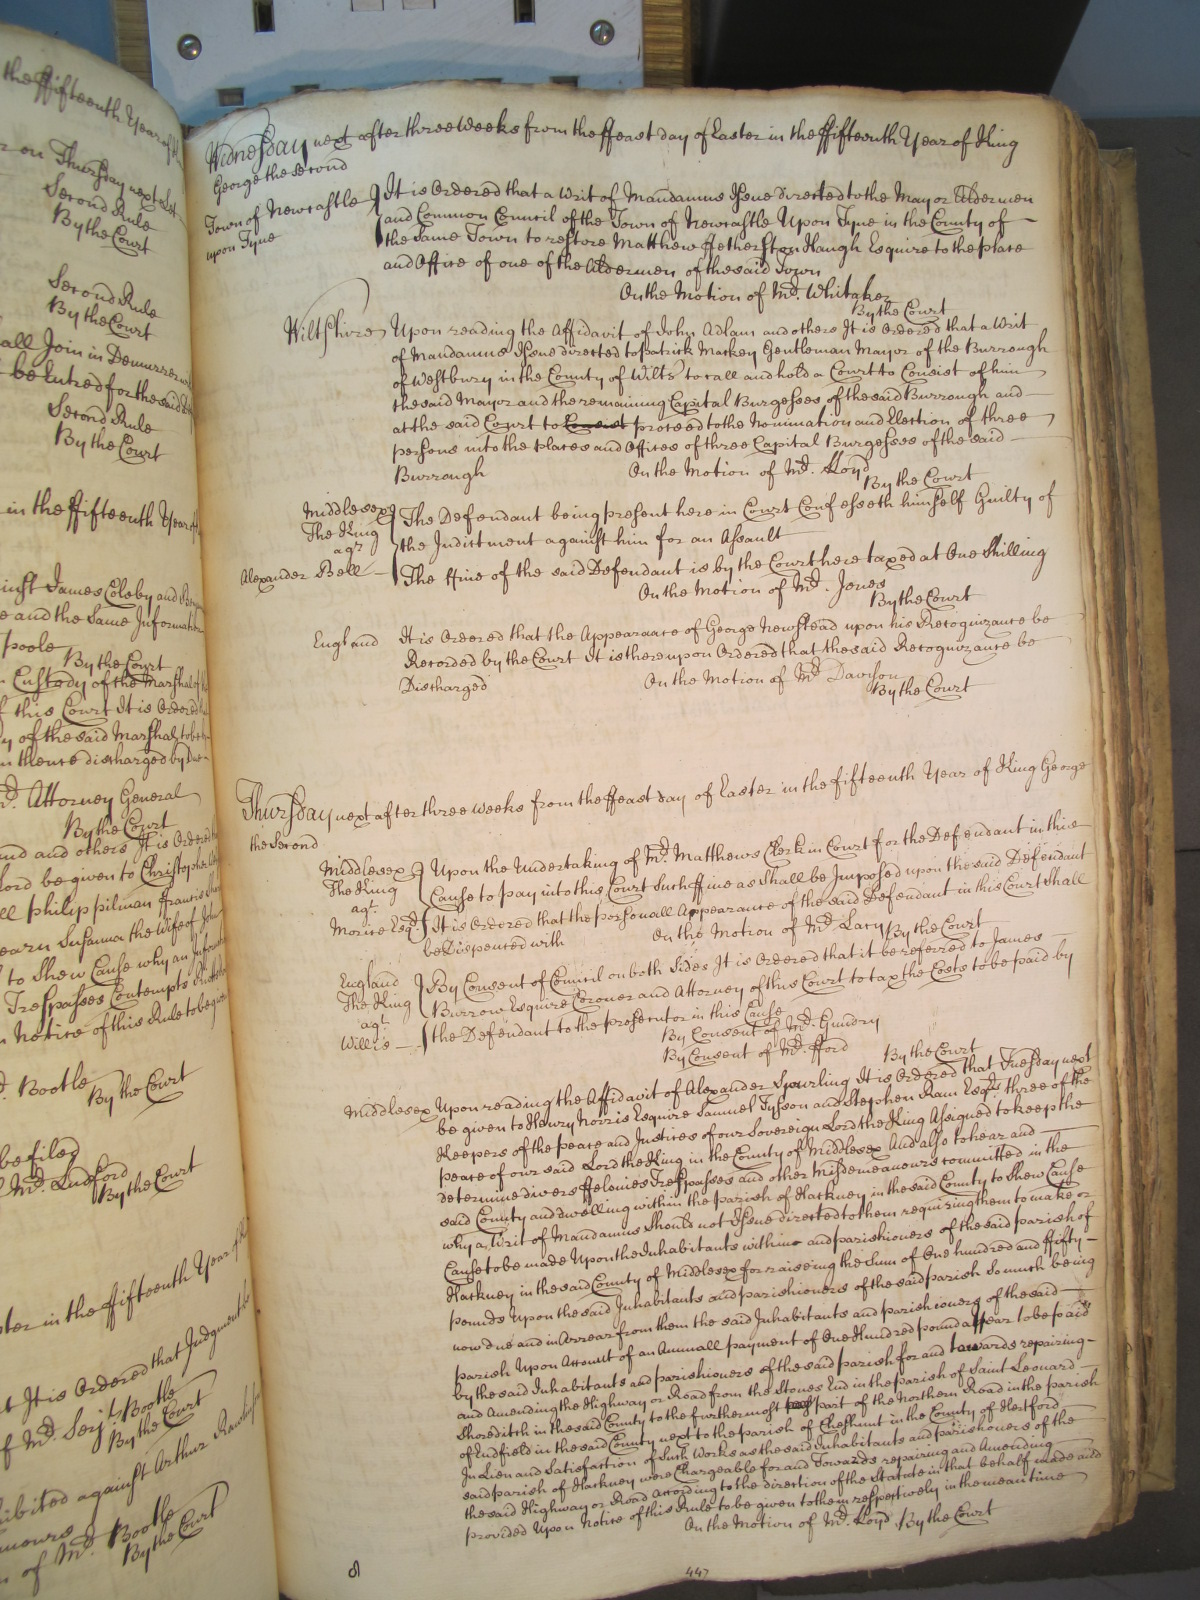 the ffifteenth Year of
r on Thursday next
Second Rule
By the Court
Second Rule
By the Court
all Join in Demurrer
be Entred for the said
Second Rule
By the Court
in the ffifteenth Year
inst James Coleby and
e and the Same Information
poole
By the Court
Custody of the Marshal of
f this Court It is Ordered
y of the said Marshal to be
thence discharged by
Mr. Attorney General
By the Court
and others It is Ordered
Lord be given to Christopher
ll philip pilman ffrancis
earn Susanna the Wife of John
to Shew Cause why an Informa
Trespasses Contempts
n Notice of this Rule to be
Bootle
By the Court
be filed
Mr. Ludford
By the Court
ter in the ffifteenth Year of
t It is Ordered that Judgment
f Mr. Serjt. Bootle
By the Court
ibited against Arthur
of Mr. Bootle
By the Court
Wednesday next after three Weeks from the ffeast day of Easter in the ffifteenth Year of King
George the Second
Town of Newcastle
upon Tyne
It is Ordered that a Writ of Mandamus Issue directed to the Mayor Aldermen
and Common Council of the Town of Newcastle Upon Tyne in the County of
the Same Town to restore Matthew ffetherston Haugh Esquire to the place
and Office of one of the Aldermen of the said Town
On the Motion of Mr. Whitaker
By the Court
Wiltshire Upon reading the Affidavit of John Adlam and others It is Ordered that a Writ
of Mandamus Issue directed to Patrick Markey Gentleman Mayor of the Burrough
of Westbury in the County of Wilts to call and hold a Court to Consist of him
the said Mayor and the remaining Capital Burgesses of the said Burrough and
at the said Court to Consist proceed to the Nomination and Election of three
persons into the places and Offices of three Capital Burgesses of the said
Burrough On the Motion of Mr. Lloyd
By the Court
Middlesex
The King
agt.
Alexander Bell
The Defendant being present here in Court Confesseth himself Guilty of
the Indictment against him for an Assault
The ffine of the said Defendant is by the Court here taxed at One Shilling
On the Motion of Mr. Jones
By the Court
England It is Ordered that the Appearance of George Newstead upon his Recognizance be
Recorded by the Court It is thereupon Ordered that the said Recognizance be
Discharged On the Motion of Mr. Davison
By the Court
Thursday next after three weeks from the ffeast day of Easter in the fifteenth Year of King George
the Second
Middlesex
The King
agt.
Morice Esqr.
Upon the Undertaking of Mr. Matthews Clerk in Court for the Defendant in this
Cause to pay into this Court Such ffine as Shall be Imposed upon the said Defendant
It is Ordered that the personall Appearance of the said Defendant in this Court Shall
be Dispensed with On the Motion of Mr. Lacy By the Court
England
The King
agt.
Willis
By Consent of Council on both Sides It is Ordered that it be referred to James
Burrow Esquire Coroner and Attorney of this Court to tax the Costs to be paid by
the Defendant to the prosecutor in this Cause
By Consent of Mr. Gundry
By Consent of Mr. fford By the Court
Middlesex Upon reading the Affidavit of Alexander Spurling It is Ordered that Tuesday next
be given to Henry Norris Esquire Samuel Tyssen and Stephen Ram Esqrs. three of the
Keepers of the peace and Justices of our Sovereign Lord the King Assigned to keep the
peace of our said Lord the King in the County of Middlesex And also to hear and
determine divers ffelonies Trespasses and other Misdemeanours committed in the
said County and dwelling within the parish of Hackney in the said County to Shew Cause
why a Writ of Mandamus Should not Issue directed to them requiring them to make or
Cause to be made Upon the Inhabitants within and parishioners of the said parish of
Hackney in the said County of Middlesex for raiseing the Sum of One hundred and ffifty
pounds Upon the said Inhabitants and parishioners of the said parish So much being
now due and in Arrear from them the said Inhabitants and parishioners of the said
parish Upon Account of an Annuall payment of One Hundred pound a year to be paid
by the said Inhabitants and parishioners of the said parish for and towards repairing
and Amending the Highway or Road from the Stones End in the parish of Saint Leonard
Shoreditch in the said County to the furthermost part of the Northern Road in the parish
of Endfield in the said County next to the parish of Cheshunt in the County of Hertford
In Lieu and Satisfaction of Such Works as the said Inhabitants and parishioners of the
said parish of Hackney were Chargeable for and Towards repairing and Amending
the said Highway or Road according to the direction of the Statute in that behalf made and
provided Upon Notice of this Rule to be given to them respectively in the mean time
On the Motion of Mr. Lloyd By the Court
447